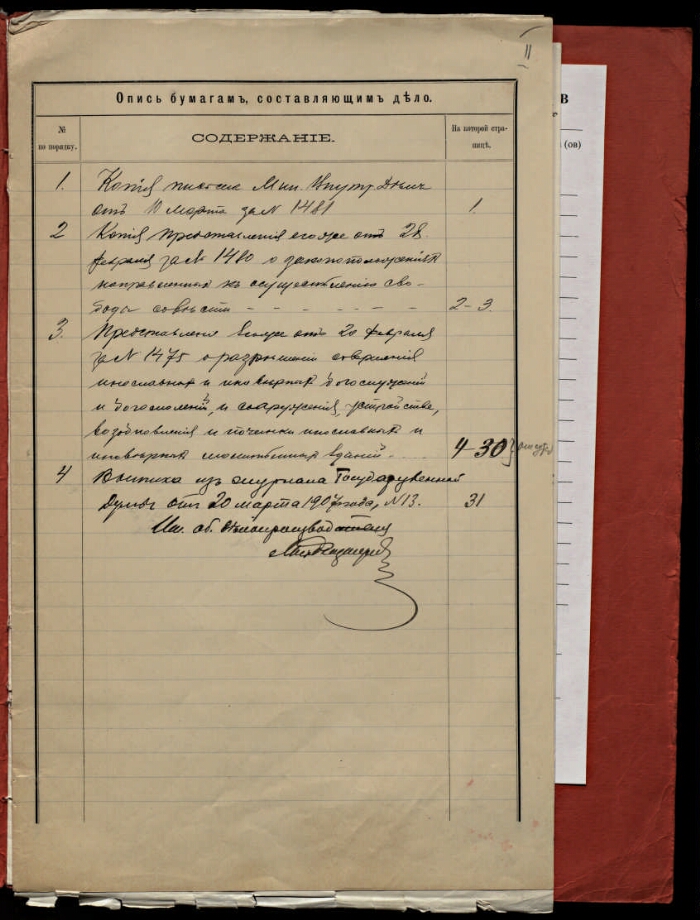 II
Опись бумагамъ, составляющимъ дѣло.
№ по порядку.
СОДЕРЖАНІЕ.
На которой стра-
ницѣ.
1. Копія письма Мин. Внутр. Дѣлъ
отъ 11 марта за № 1481 1.
2 Копія представленія его же отъ 28
февраля за № 1480 о законоположеніяхъ
направленныхъ къ осуществленію сво-
боды совѣсти - - - - - - - 2-3.
3. Представленіе отъ 20 февраля
за № 1475 о разрѣшеніи совершенія
инославныхъ и иновѣрныхъ богослуженій
и богомоленій, и сооруженія, устройства,
возобновленія и починки инославныхъ и
иновѣрныхъ молитвенныхъ зданій 4-30
4 Выписка изъ журнала Государственной
Думы отъ 20 марта 1907 года, № 13. 31
Ип. об. Дѣлопроизводителя
В
(ов)